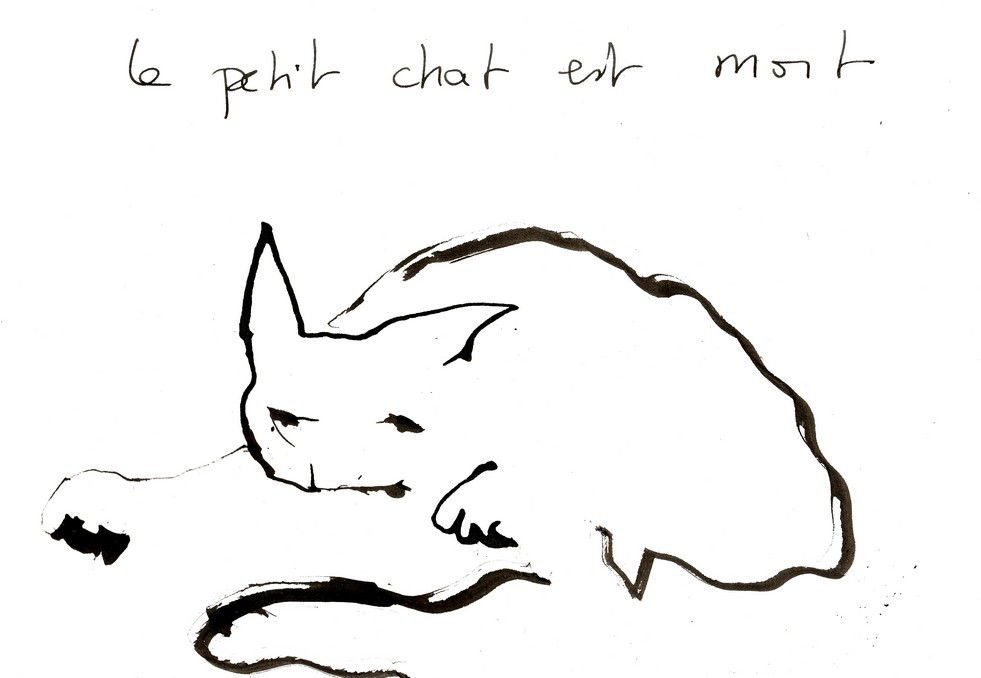 le petit chat est mort